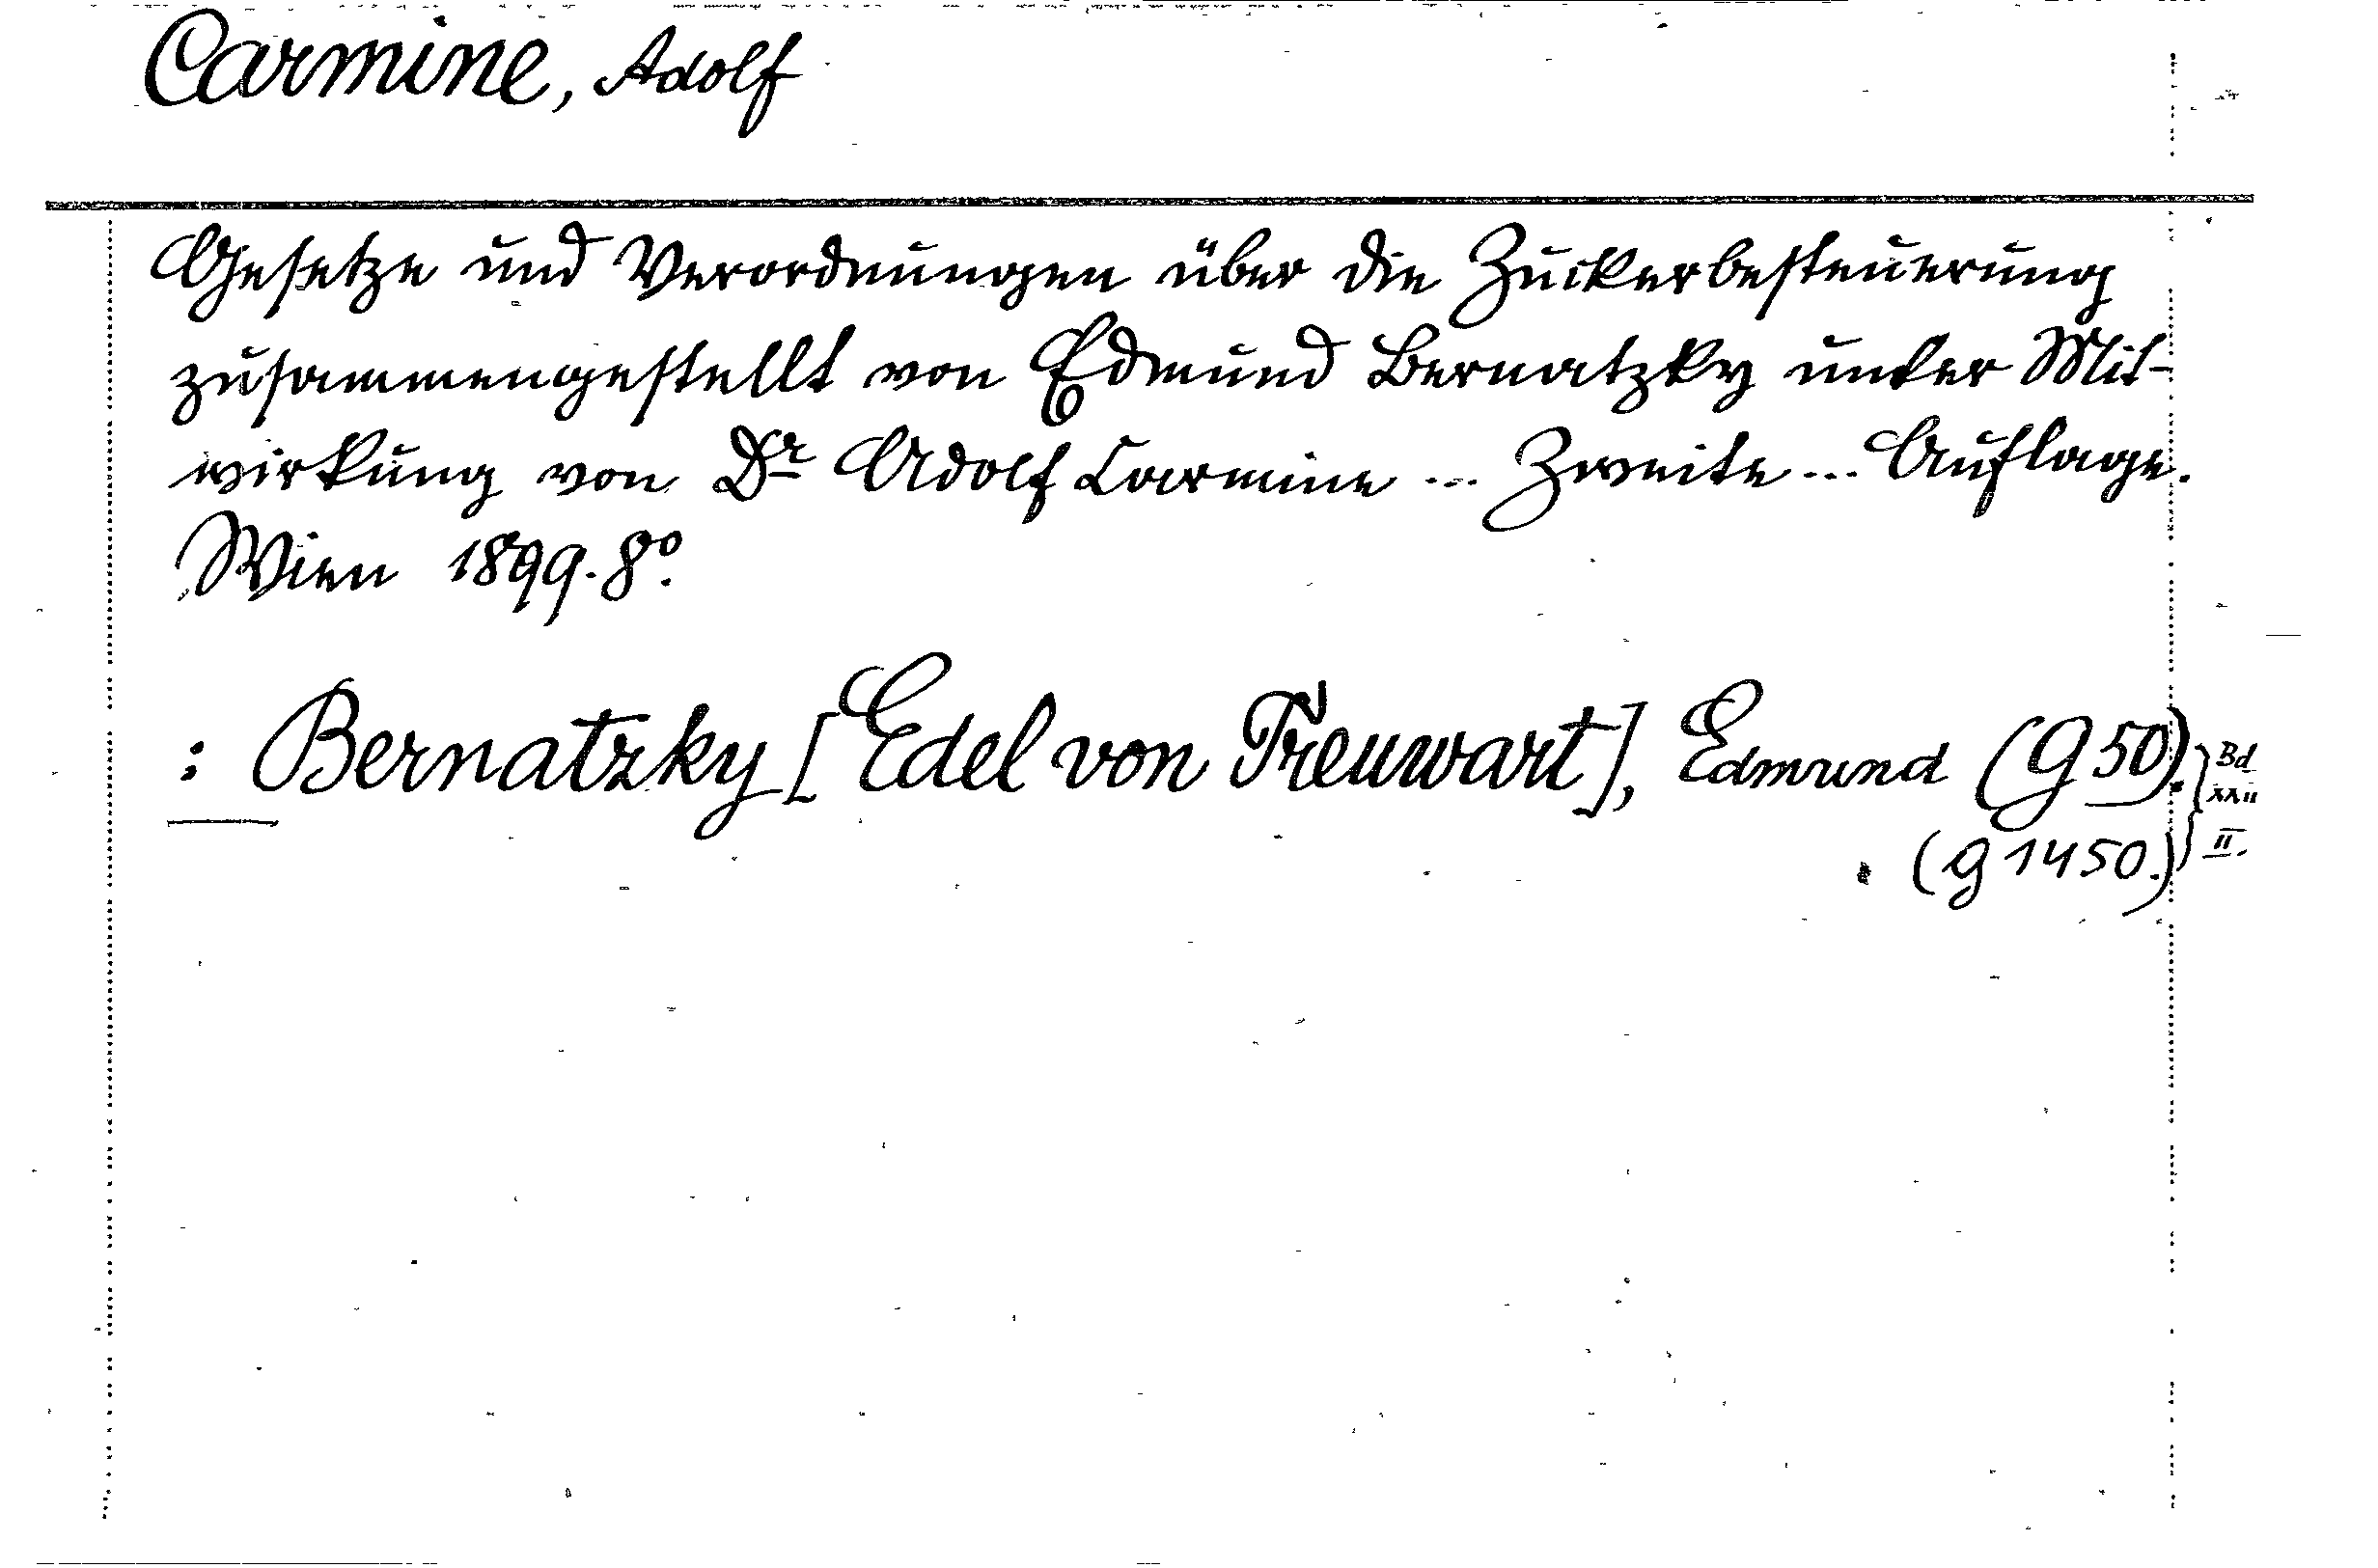 Carmine, Adolf
Gesetze und Verordnungen über die Zuckerbesteuerung
zusammengestellt von Edmund Bernatzky unter Mit-
wirkung von Dr Adolf Carmine ... Zweite ... Auflage.
Wien 1899. 8°.
: Bernatzky [Edel von Treuwart], Edmund (G 50). Bd XXII
(G 1450.) II.